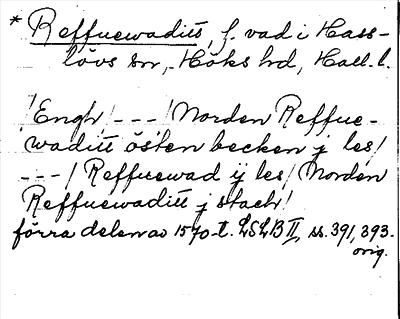 * Reffuewaditt, f. vad i Hass-
lövs sn, Höks hd, Hall. l.
/Engh/ --- /Norden Reffue-
waditt östen becken j les/
--- / Reffuewad ij les/ Norden
Reffuewaditt j stack/
förra delen av 1570-t. LSLB II, ss. 391, 393.
orig.